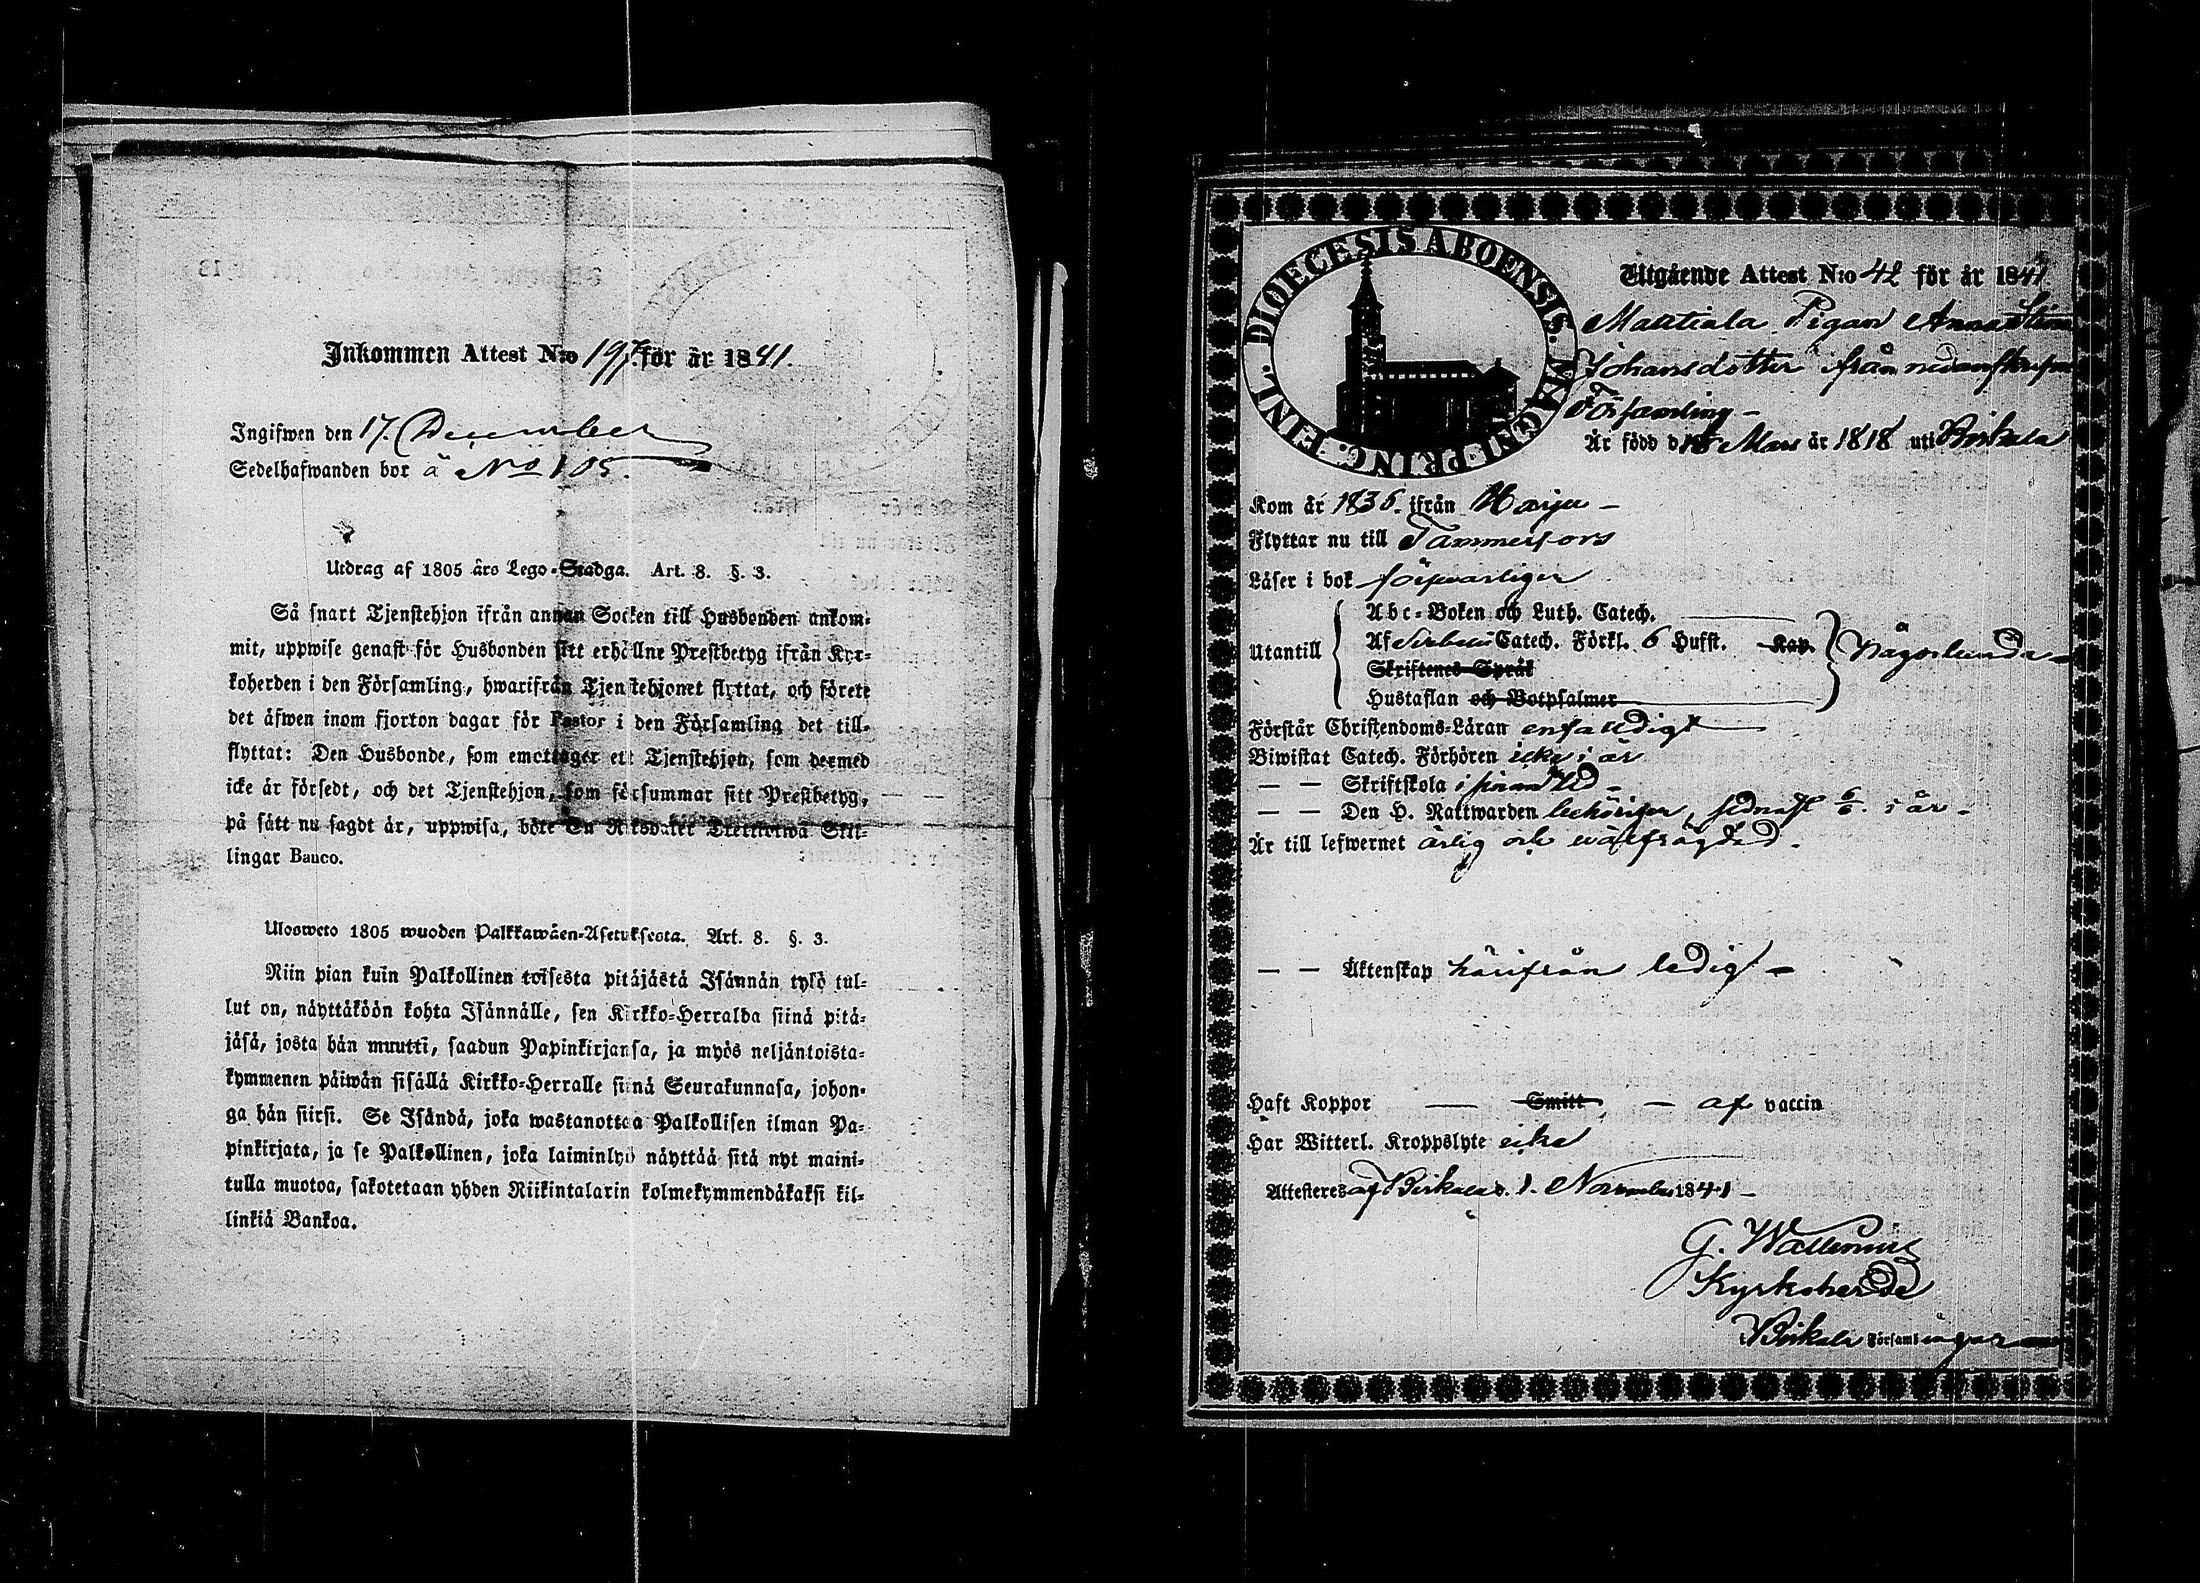 Inkommen Attest N:o 197. för år 1841.
Ingifwen den 17. December
Sedelhafwanden bor å No 105.
Utdrag af 1805 års Lego-Stadga. Art. 8. §. 3.
Så snart Tjenstehjon ifrån annan Socken till Husbonden ankom-
mit, uppwise genast för Husbonden sitt erhållne Prestbetyg ifrån Kyr-
koherden i den Församling, hwarifrån Tjenstehjonet flyttat, och förete
det äfwen inom fjorton dagar för Pastor i den Församling det till-
flyttat: Den Husbonde, som emottager ett Tjenstehjon, som dermed
icke är försedt, och det Tjenstehjon, som försummar sitt Prestbetyg,
på sätt nu sagdt är, uppwisa, böte En Riksdaler Trettiotwå Skil-
lingar Banco.
Ulosweto 1805 wuoden Palkkawäen-Asetuksesta. Art. 8. §. 3.
Niin pian kuin Palkollinen toisesta pitäjästä Isännän tykö tul-
lut on, näyttäköön kohta Isännälle, sen Kirkko-Herralda siinä pitä-
jäsä, josta hän muutti, saadun Papinkirjansa, ja myös neljäntoista-
kymmenen päiwän sisällä Kirkko-Herralle siinä Seurakunnasa, johon-
ga hän siirsi. Se Isändä, joka wastanottaa Palkollisen ilman Pa-
pinkirjata, ja se Palkollinen, joka laiminlyö näyttää sitä nyt maini-
tulla muotoa, sakotetaan yhden Riikintalarin kolmekymmendäkaksi kil-
linkiä Bankoa.
DIOECESIS ABOENSIS. MAGNI PRINC. FINL.
Utgående Attest N:o 42 för år 1841
Mattiala Pigan Anna Stina
Johansdotter ifrån nedanskrefne
Församling -
Är född d 18 Mars år 1818 uti Birkala
Kom år 1836. ifrån Harju -
Flyttar nu till Tammerfors
Läser i bok försvarligen
Utantill
Abc-Boken och Luth. Catech.
Af Svebelii Catech. Förkl. 6 Hufst. Kap.
Skriftenes Språk
Hustaflan och Botpsalmer
någorlunda -
Förstår Christendoms-Läran enfaldigt
Biwistat Catech. Förhören icke i år
— — Skriftskola
— — Den H. Nattwarden behörigen, sednast 6/6 i år -
Är till lefwernet ärlig och wälfrägdad -
— — Äktenskap härifrån ledig -
Haft Koppor — Smitt — af vaccin
Har Witterl. Kroppslyte icke
Attesteres af Birkala d. 1. November 1841 -
G. Wallenius
Kyrkoherde
i Birkala Församlingar